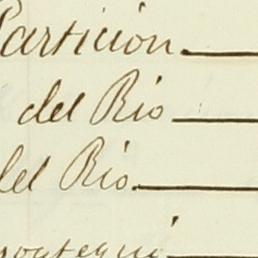 Particion
del Rio
del Rio